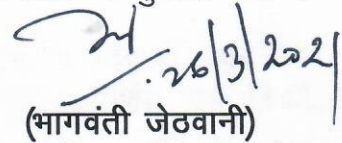 26/3/2021
(भागवंती जेठवानी)